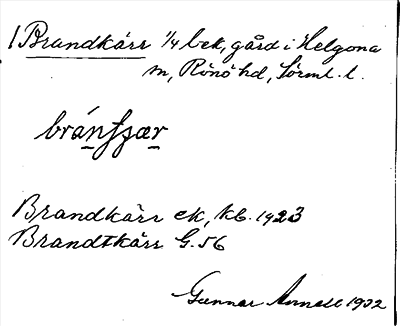 1 Brandkärr 1/4 bek, gård i Helgona
sn, Rönö hd, Sörml. l.
Brandkärr ek, kb. 1923
Brandtkärr G. 56
Gunnar Annell 1932